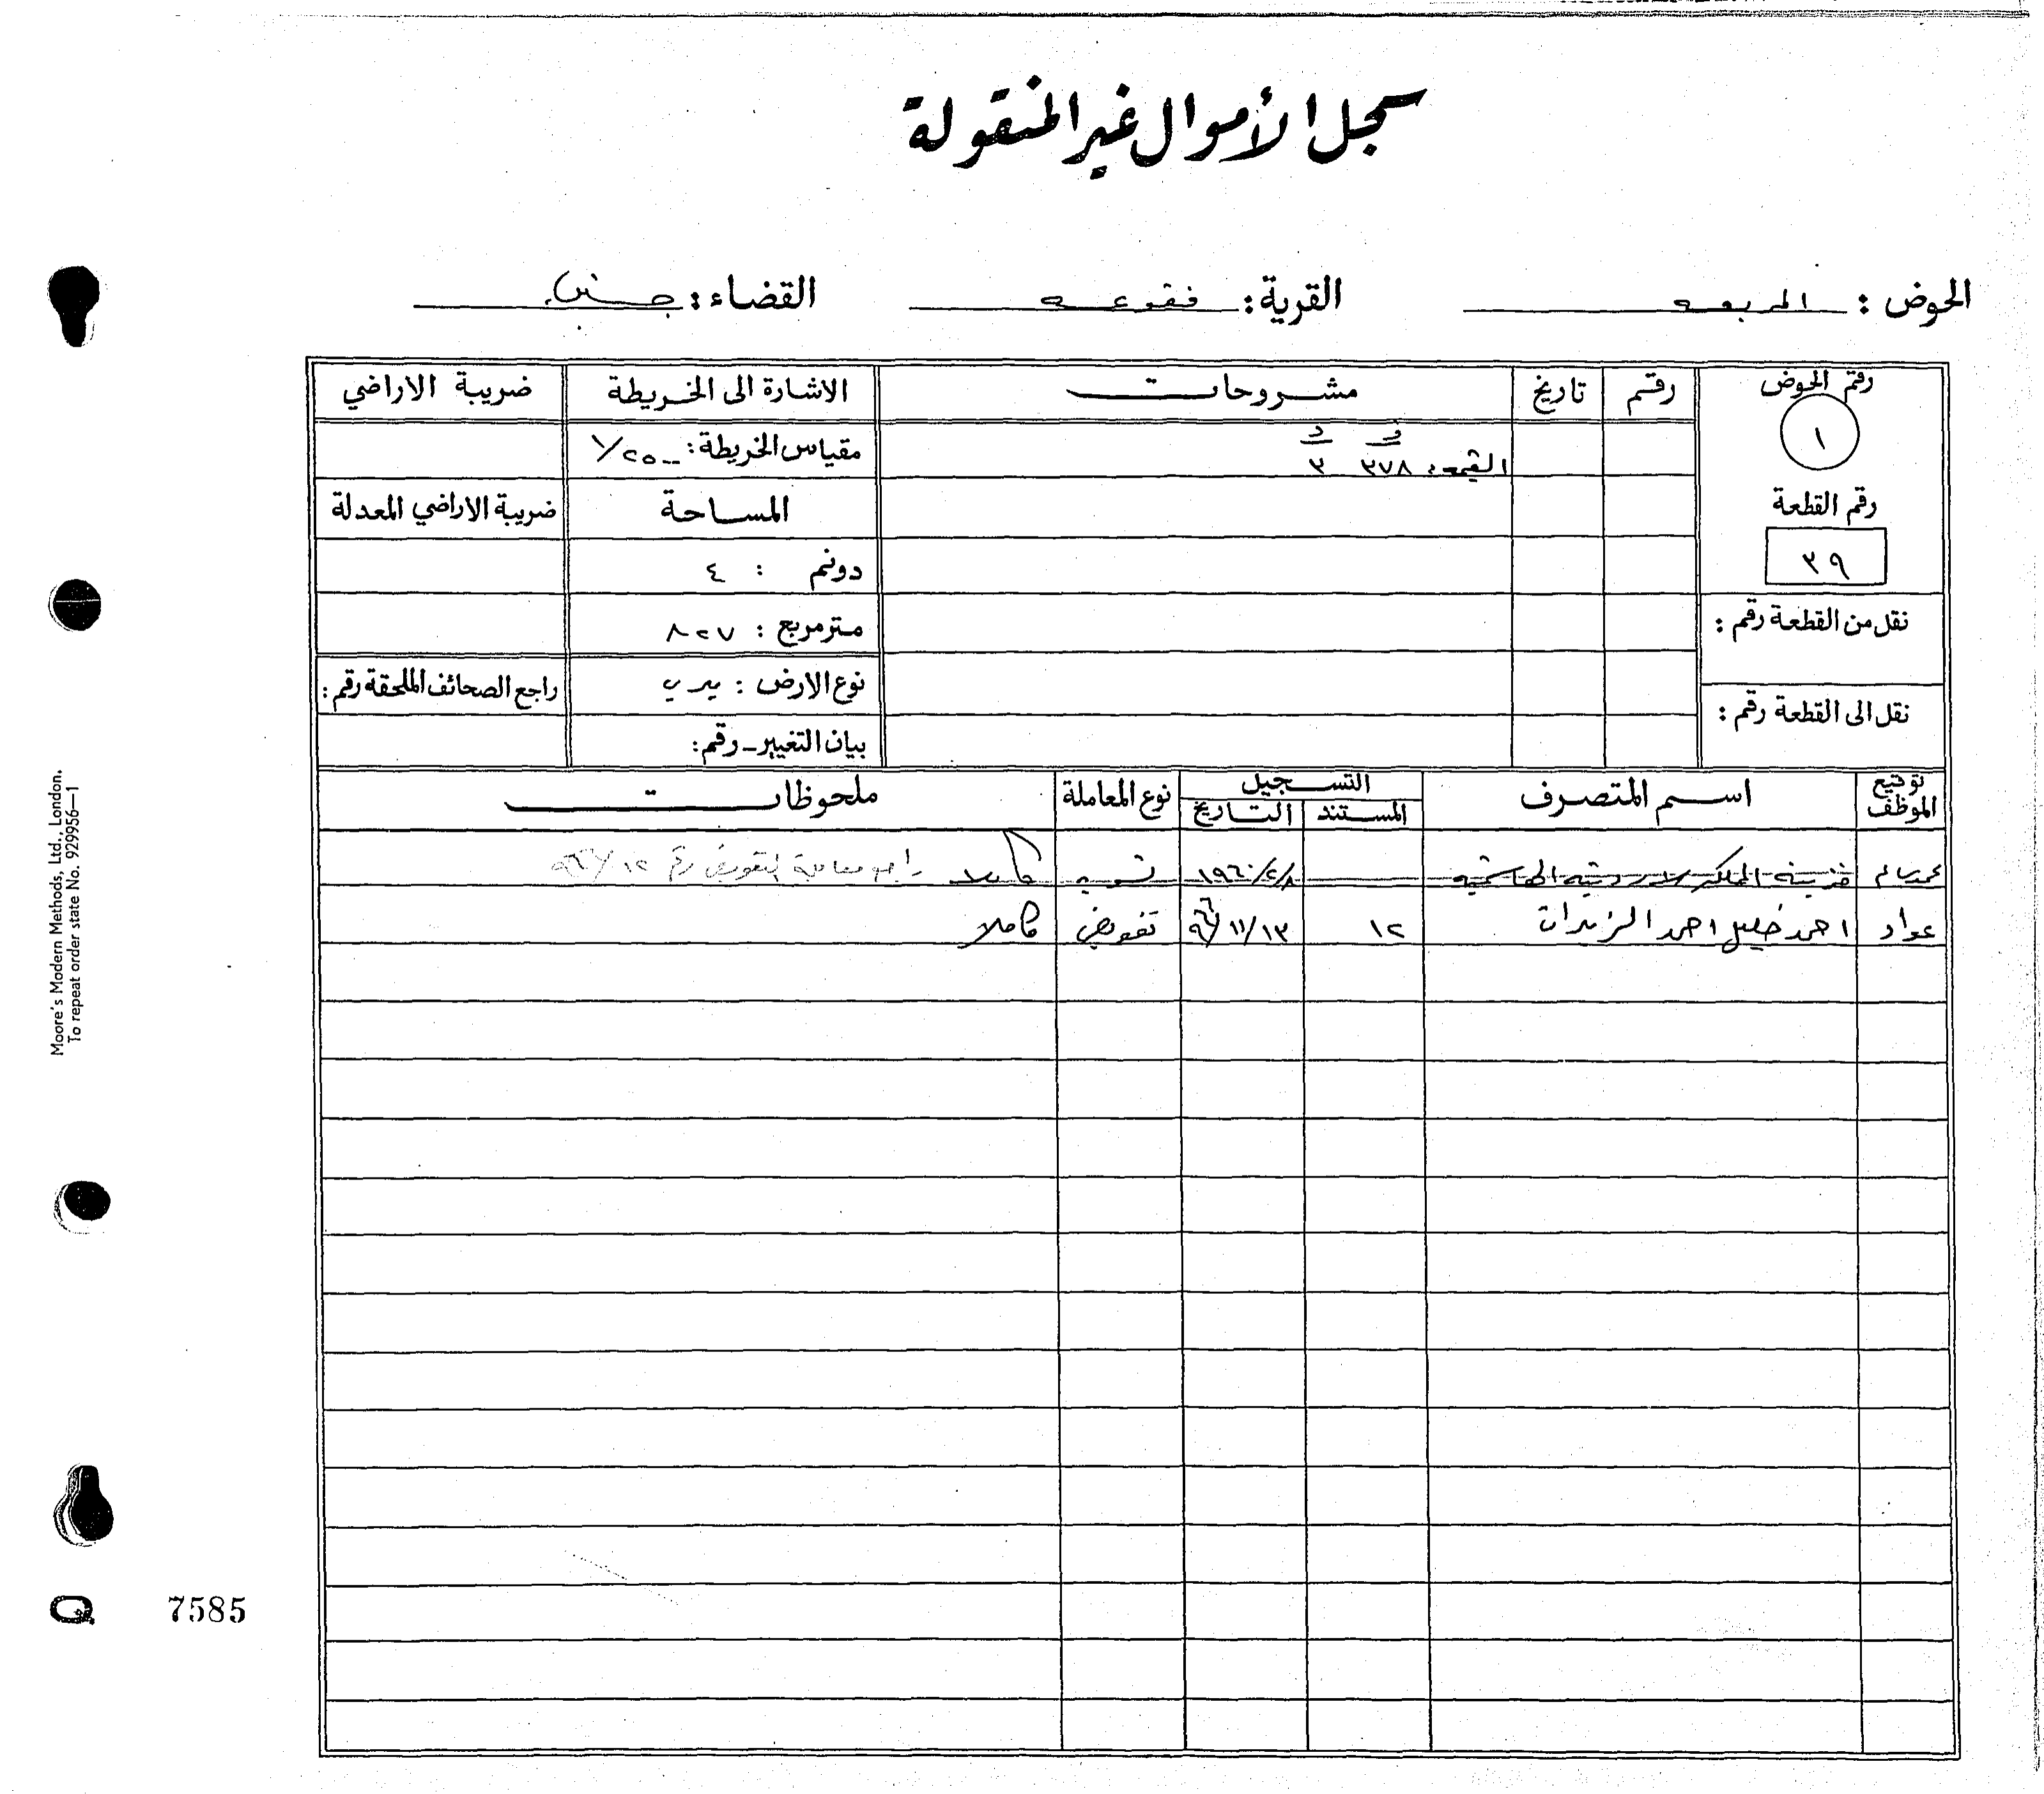 سجل الأموال غير المنقولة
الحوض : المربعه القرية : فقوعه القضاء : جنين
رقم الحوض رقم تاريخ مشروحات الاشارة الى الخريطة ضريبة الاراضي
١
ف د
القيمة: ٣٧٨ ٣
مقياس الخريطة : ١/٢٥٠٠
رقم القطعة
٣٩
المساحة ضريبة الاراضي المعدلة
دونم : ٤
نقل من القطعة رقم :
متر مربع : ٨٢٧
نوع الارض : ميري راجع الصحائف الملحقة رقم :
نقل الى القطعة رقم :
بيان التغيير - رقم :
توقيع الموظف اسم المتصرف التسجيل نوع المعاملة ملحوظات
المستند التاريخ
خزينة المملكة الاردنية الهاشمية ١٩٦٠/٢/٨ تسويه كاملا راجع معاملة تفويض رقم ١٢/٩٦٦
عواد احمد خليل احمد الزيدات ١٢ ٩٦٦/١١/١٣ تفويض كاملا
Moore's Modern Methods, Ltd., London.
To repeat order state No. 929956—1
Q 7585